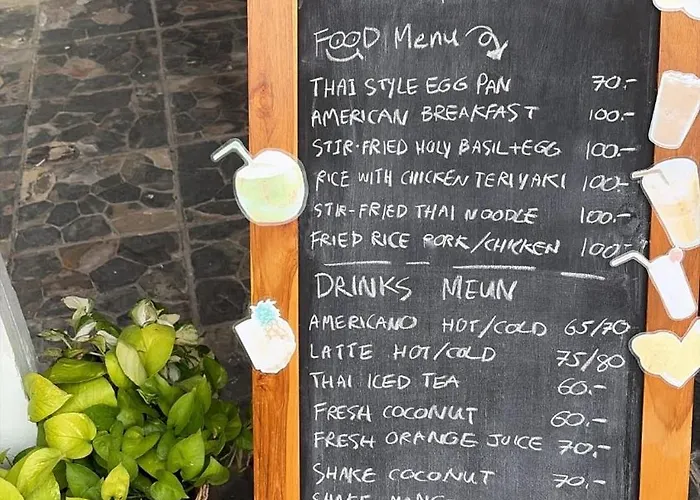 FOOD Menu
THAI STYLE EGG PAN 70.-
AMERICAN BREAKFAST 100.-
STIR-FRIED HOLY BASIL+EGG 100.-
RICE WITH CHICKEN TERIYAKI 100.-
STIR-FRIED THAI NOODLE 100.-
FRIED RICE PORK/CHICKEN 100.-
DRINKS MEUN
AMERICANO HOT/COLD 65/70
LATTE HOT/COLD 75/80
THAI ICED TEA 60.-
FRESH COCONUT 60.-
FRESH ORANGE JUICE 70.-
SHAKE COCONUT 70.-
SHAKE